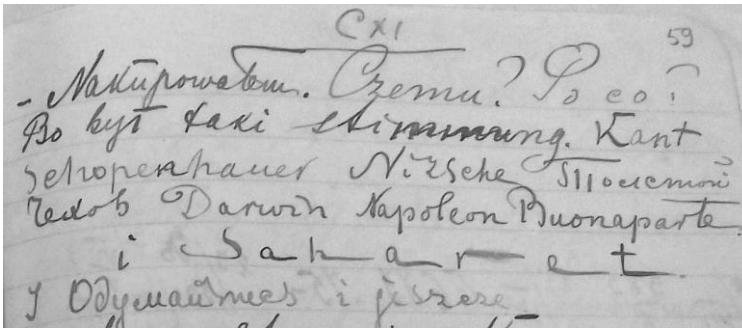 CXI
59
- Nakupowałem. Czemu? Po co?
Bo był taki stimmung. Kant
Schopenhauer Nizsche Толстой
Чехов Darwin Napoleon Buonaparte
i Saharet.
I Одумайтесь i jeszcze